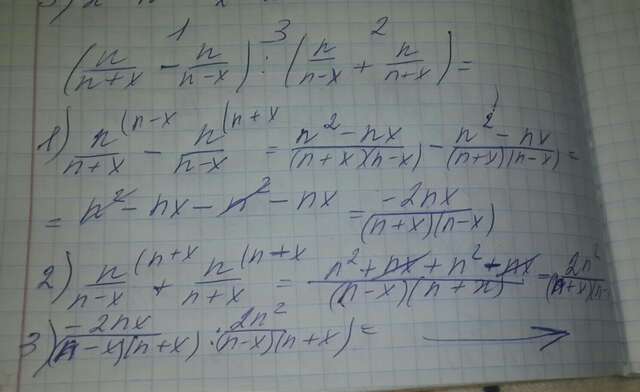 1 3 2
(n/(n+x) - n/(n-x)) : (n/(n-x) + n/(n+x)) =
1) n/(n+x) (n-x - n/(n-x) (n+x = (n² - nx)/((n+x)(n-x)) - (n² - nx)/((n+x)(n-x)) =
= n² - nx - n² - nx = -2nx/((n+x)(n-x))
2) n/(n-x) (n+x + n/(n+x) (n-x = (n² + nx + n² - nx)/((n-x)(n+x)) = 2n²/((n+x)(n-
3) -2nx/((n-x)(n+x)) : 2n²/((n-x)(n+x)) = →